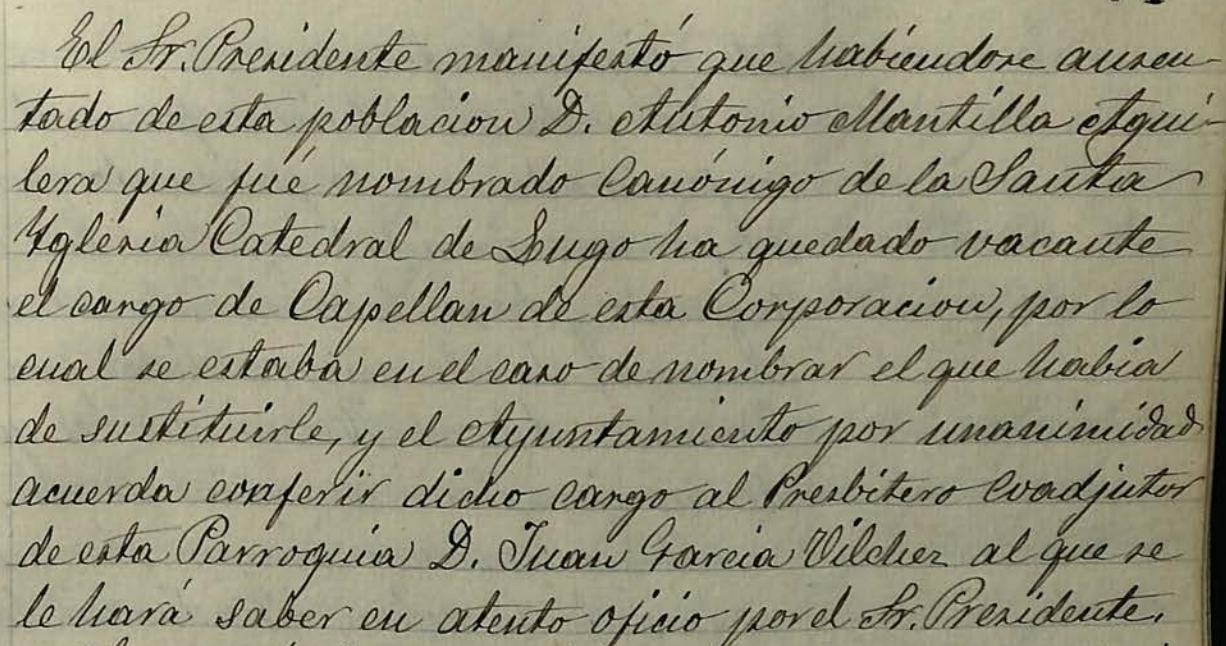 El Sr. Presidente manifestó que habiéndose ausen-
tado de esta poblacion D. Antonio Mantilla Agui-
lera que fué nombrado Canónigo de la Santa
Yglesia Catedral de Lugo ha quedado vacante
el cargo de Capellan de esta Corporacion, por lo
cual se estaba en el caso de nombrar el que habia
de sustituirle, y el Ayuntamiento por unanimidad
acuerda conferir dicho cargo al Presbitero Coadjutor
de esta Parroquia D. Juan Garcia Vilchez al que se
le hará saber en atento oficio por el Sr. Presidente.